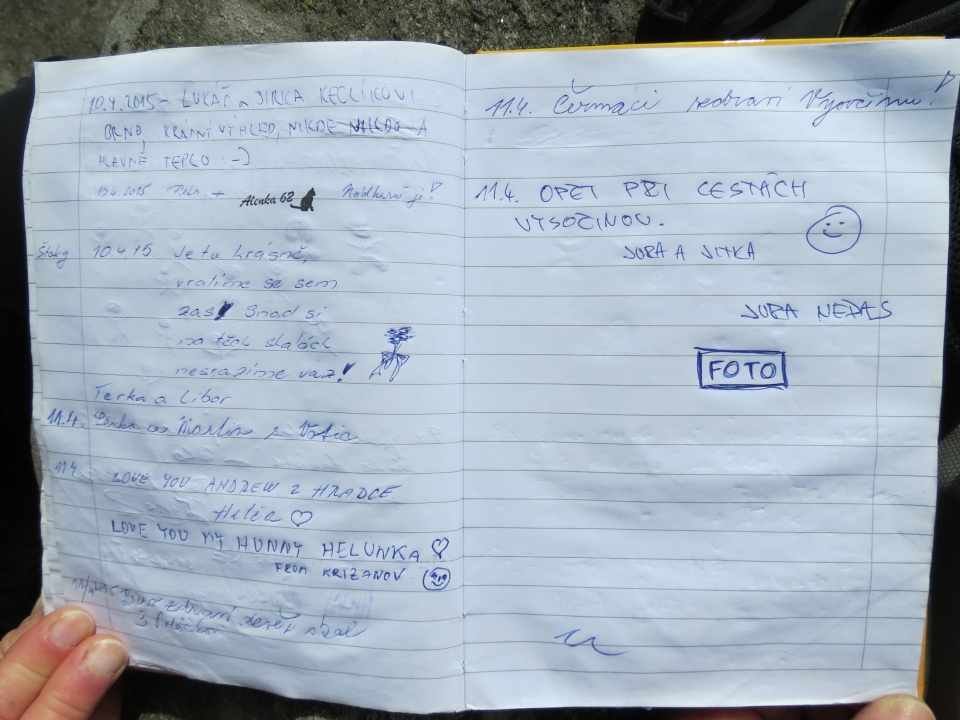 10.4.2015 - LUKÁŠ a JIRKA KECLÍKOVI
BRNO, KRÁSNÝ VÝHLED, NIKDE NIKDO A
HLAVNĚ TEPLO :-)
10.4.2015 Petr + Alenka 62 Nádherně je!
Štoky 10.4.15 Je tu krásně,
vrátíme se sem
zas! Snad si
na těch skalách
nesrazíme vaz!
Terka a Libor
11.4. Lenka a Martin
11.4. LOVE YOU ANDREW Z HRADCE
Helča ♡
LOVE YOU MY HUNNY HELUNKA ♡
FROM KRIZANOV
zdraví
11.4. Čermáci zdraví Vysočinu!
11.4. OPET PŘI CESTÁCH
VYSOČINOU.
JURA A JITKA
JURA
FOTO